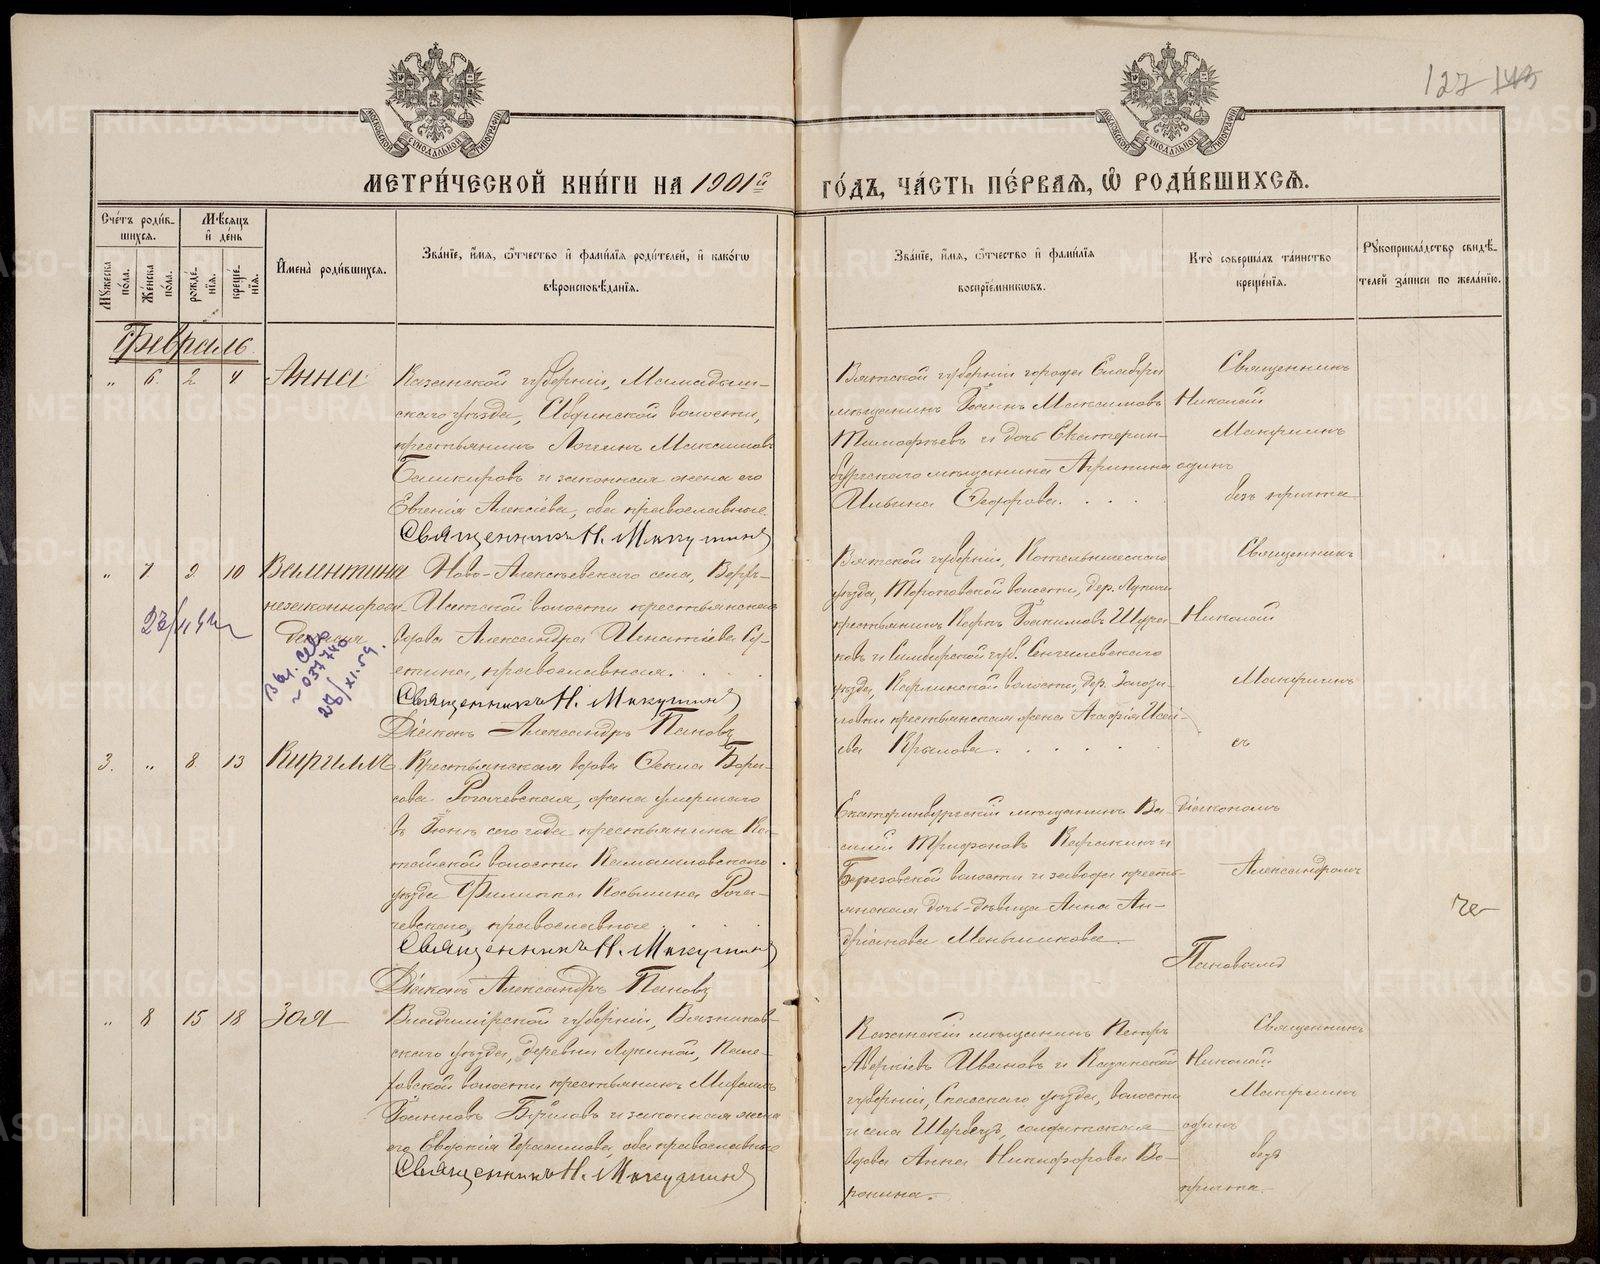 127 143
МОСКОВСКОЙ СѴНОДАЛЬНОЙ ТИПОГРАФІИ
МОСКОВСКОЙ СѴНОДАЛЬНОЙ ТИПОГРАФІИ
МЕТРИ́ЧЕСКОЙ КНИ́ГИ НА 1901й ГО́ДЪ, ЧА́СТЬ ПЕ́РВАѦ, Ѡ РОДИ́ВШИХСѦ.
Сче́тъ роди́вшихсѧ.
Мѣ́сѧцъ и де́нь
Мꙋ́жеска по́ла.
Же́нска по́ла.
рожде́нїѧ.
креще́нїѧ.
Имена̀ роди́вшихсѧ.
Зва́нїе, и́мѧ, ѻ́тчество и фами́лїѧ роди́телей, и како́гѡ
вѣроисповѣ́данїѧ.
Зва́нїе, и́мѧ, ѻ́тчество и фами́лїѧ
воспрїе́мникѡвъ.
Кто̀ соверша́лъ та́инство
креще́нїѧ.
Рꙋкоприкла́дство свидѣ́телей за́писи по жела́нїю.
Февраль
„ 6. 2 4. Анна
Казанской губерніи, Мамадыш-
скаго уѣзда, волости,
крестьянинъ Логинъ Максимовъ
Башкировъ и законная жена его
Евгенія Алексіева, оба православные.
Священникъ Н. Макушинъ
Вятской губерніи города Елабуги
мѣщанинъ Іоаннъ Максимовъ
Тимофѣевъ и дочь Екатерин-
бургскаго мѣщанина Агрипина
Ильина Федорова. . . .
Священникъ
Николай
Макушинъ
одинъ
безъ причта
„ 7 9 10 Валентина
незаконнорож-
денная
27/II 54
Вы. св.
№ 037740
27/XI-59.
Ново-Алексѣевскаго села, Верхъ-
Исетской волости крестьянская
вдова Александра Игнатіева Су-
етина, православная. . . .
Священникъ Н. Макушинъ
Діаконъ Александръ Пановъ
Вятской губерніи, Котельническаго
уѣзда, волости, дер.
крестьянинъ Карпъ Іоакимовъ
ковъ и Симбирской губ. Сенгилеевскаго
уѣзда, волости, дер.
крестьянская жена Агафія
ева Крылова. . . . .
Священникъ
Николай
Макушинъ
съ
3. „ 8 13 Кириллъ
Крестьянская вдова Ѳекла Бори-
сова Рогачевская, жена умершаго
въ Іюнѣ сего года крестьянина Ка-
тайской волости Камышловскаго
уѣзда Филиппа Косьмина Рога-
чевскаго, православные. . .
Священникъ Н. Макушинъ
Діаконъ Александръ Пановъ
Екатеринбургскій мѣщанинъ Ва-
силій Трифоновъ и
Березовской волости и завода кресть-
янская дочь-дѣвица Анна Ан-
дріанова Меньшикова.
діакономъ
Александромъ
Пановымъ
„ 8 15 18 Зоя
Владимірской губерніи, Вязников-
скаго уѣзда, деревни Лукиной, Пале-
ховской волости крестьянинъ Михаилъ
Іоанновъ и законная жена
его Евдокія Герасимова, оба православные
Священникъ Н. Макушинъ
Казанскій мѣщанинъ Петръ
Аверкіевъ Ивановъ и Казанской
губерніи, Спасскаго уѣзда, волости
и села солдатская
вдова Анна Никифорова Во-
ронина.
Священникъ
Николай
Макушинъ
одинъ
безъ
причта.
METRIKI.GASO-URAL.RU